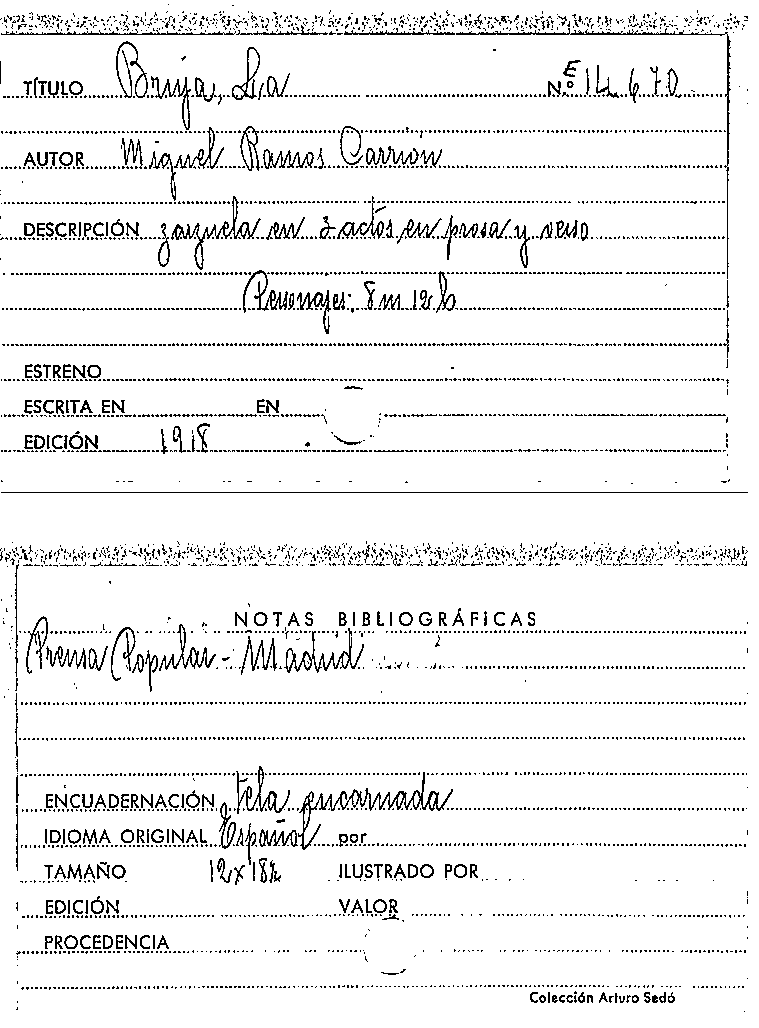 TÍTULO Bruja, La N.º E 14.670
AUTOR Miguel Ramos Carrión
DESCRIPCIÓN zarzuela en 3 actos, en prosa y verso
Personajes: 8 m 12 h
ESTRENO
ESCRITA EN EN
EDICIÓN 1918
NOTAS BIBLIOGRÁFICAS
Prensa Popular - Madrid
ENCUADERNACIÓN tela encarnada
IDIOMA ORIGINAL Español por
TAMAÑO 12 x 18½ ILUSTRADO POR
EDICIÓN VALOR
PROCEDENCIA
Colección Arturo Sedó